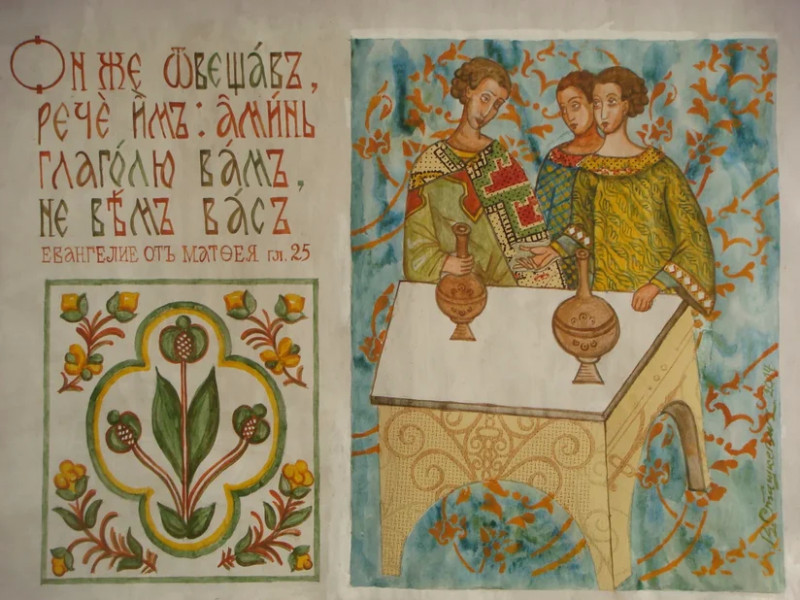 Он же ѿвеща́въ,
речѐ и҆̀мъ: а҆ми́нь
глаго́лю ва́мъ,
не вѣ́мъ ва́съ
Евангелие отъ Матѳея гл. 25
2014